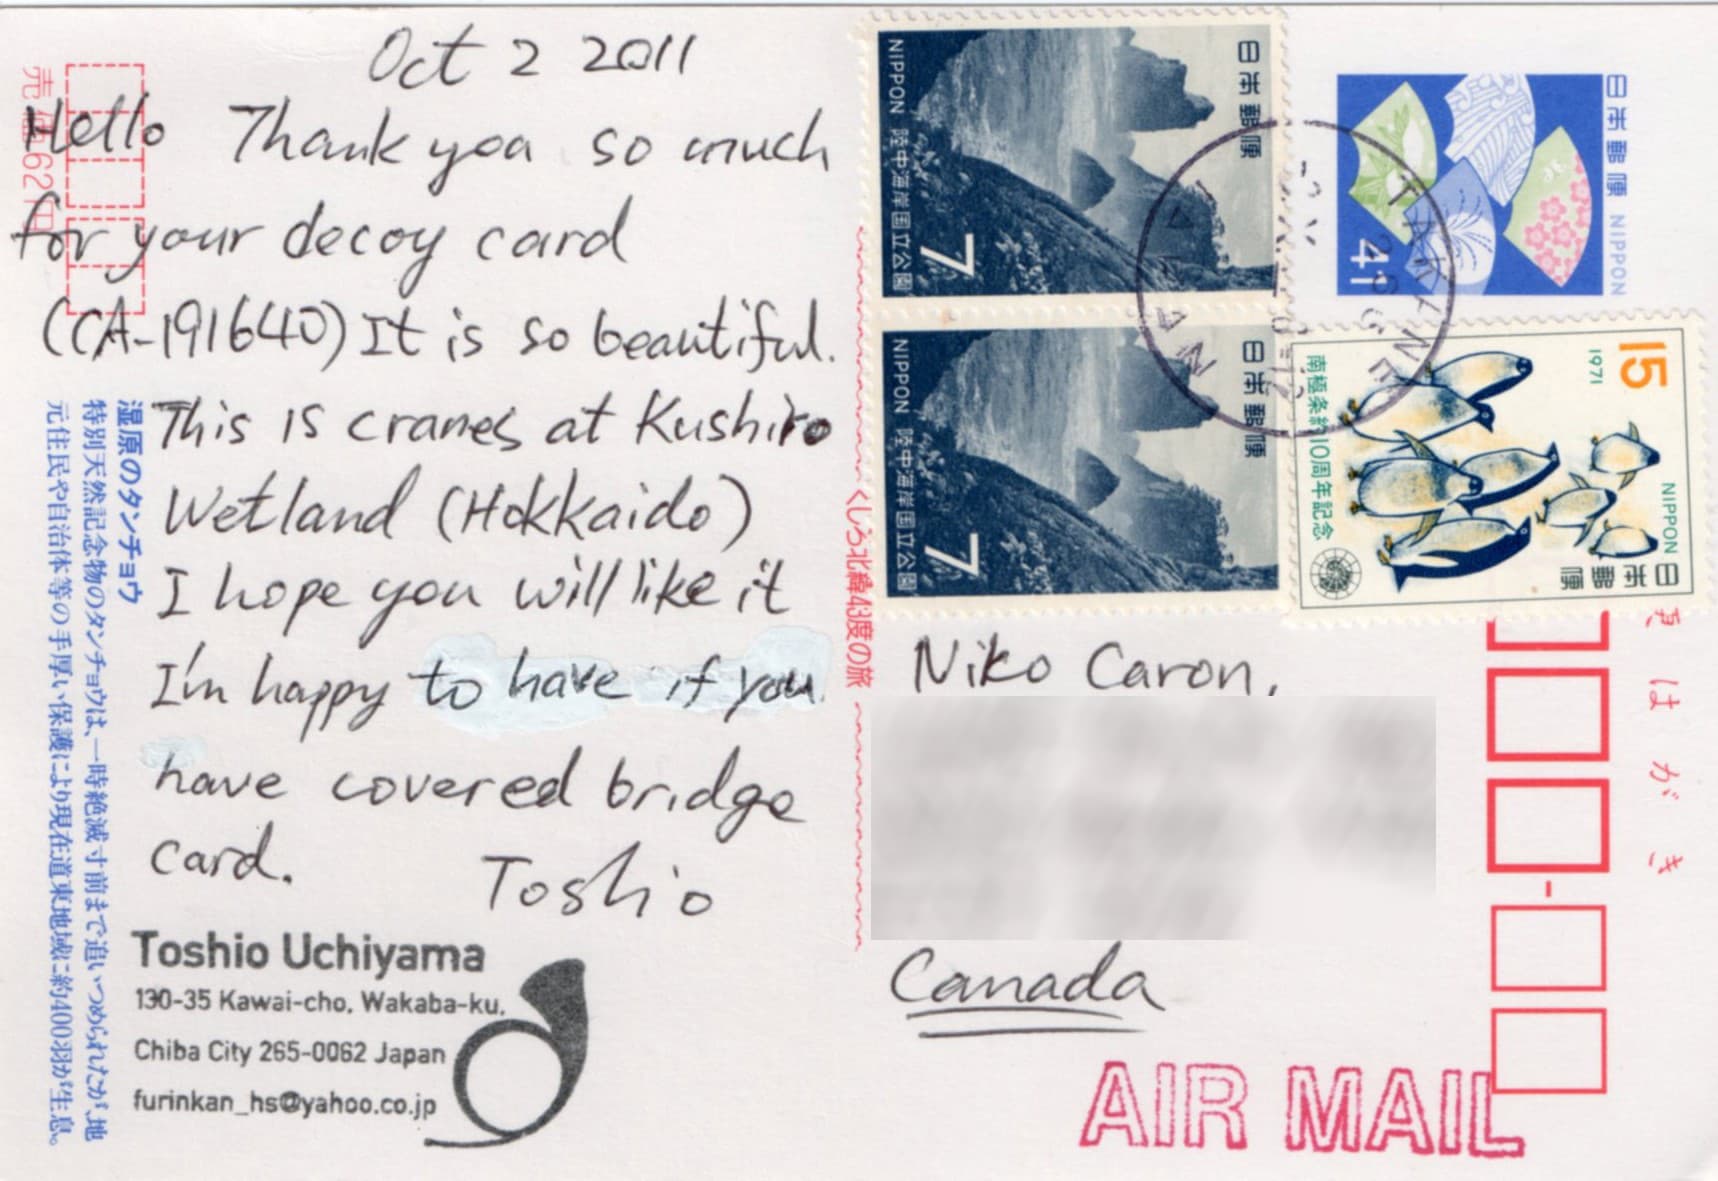 Oct 2 2011
Hello Thank you so much
for your decoy card
(CA-191640) It is so beautiful.
This is cranes at Kushiro
Wetland (Hokkaido)
I hope you will like it
I'm happy to have if you
have covered bridge
card.
Toshio
Toshio Uchiyama
130-35 Kawai-cho, Wakaba-ku,
Chiba City 265-0062 Japan
furinkan_hs@yahoo.co.jp
湿原のタンチョウ
特別天然記念物のタンチョウは、一時絶滅寸前まで追いつめられたが、地
元住民や自治体等の手厚い保護により現在道東地域に約400羽が生息。
売価62円
くしろ北緯43度の旅
日本郵便
NIPPON 陸中海岸国立公園
7
日本郵便
NIPPON 陸中海岸国立公園
7
日本郵便 NIPPON
41
15
1971
南極条約10周年記念
NIPPON
日本郵便
Niko Caron,
Canada
AIR MAIL
便はがき